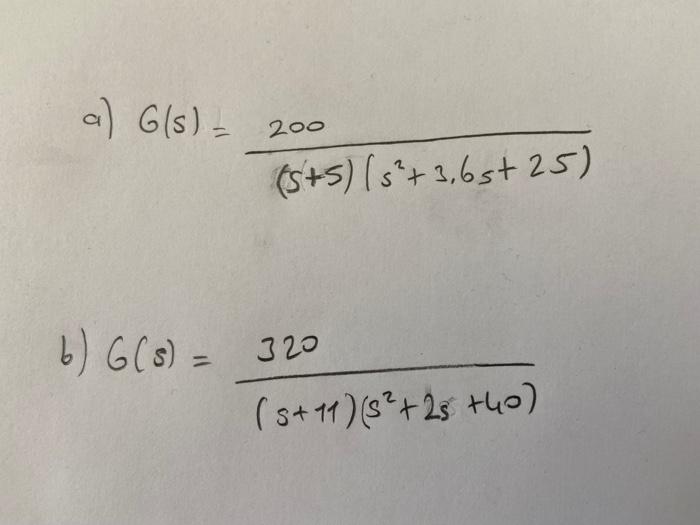 a) G(s) = 200
(s+5)(s²+3,6s+25)
b) G(s) = 320
(s+11)(s²+2s+40)